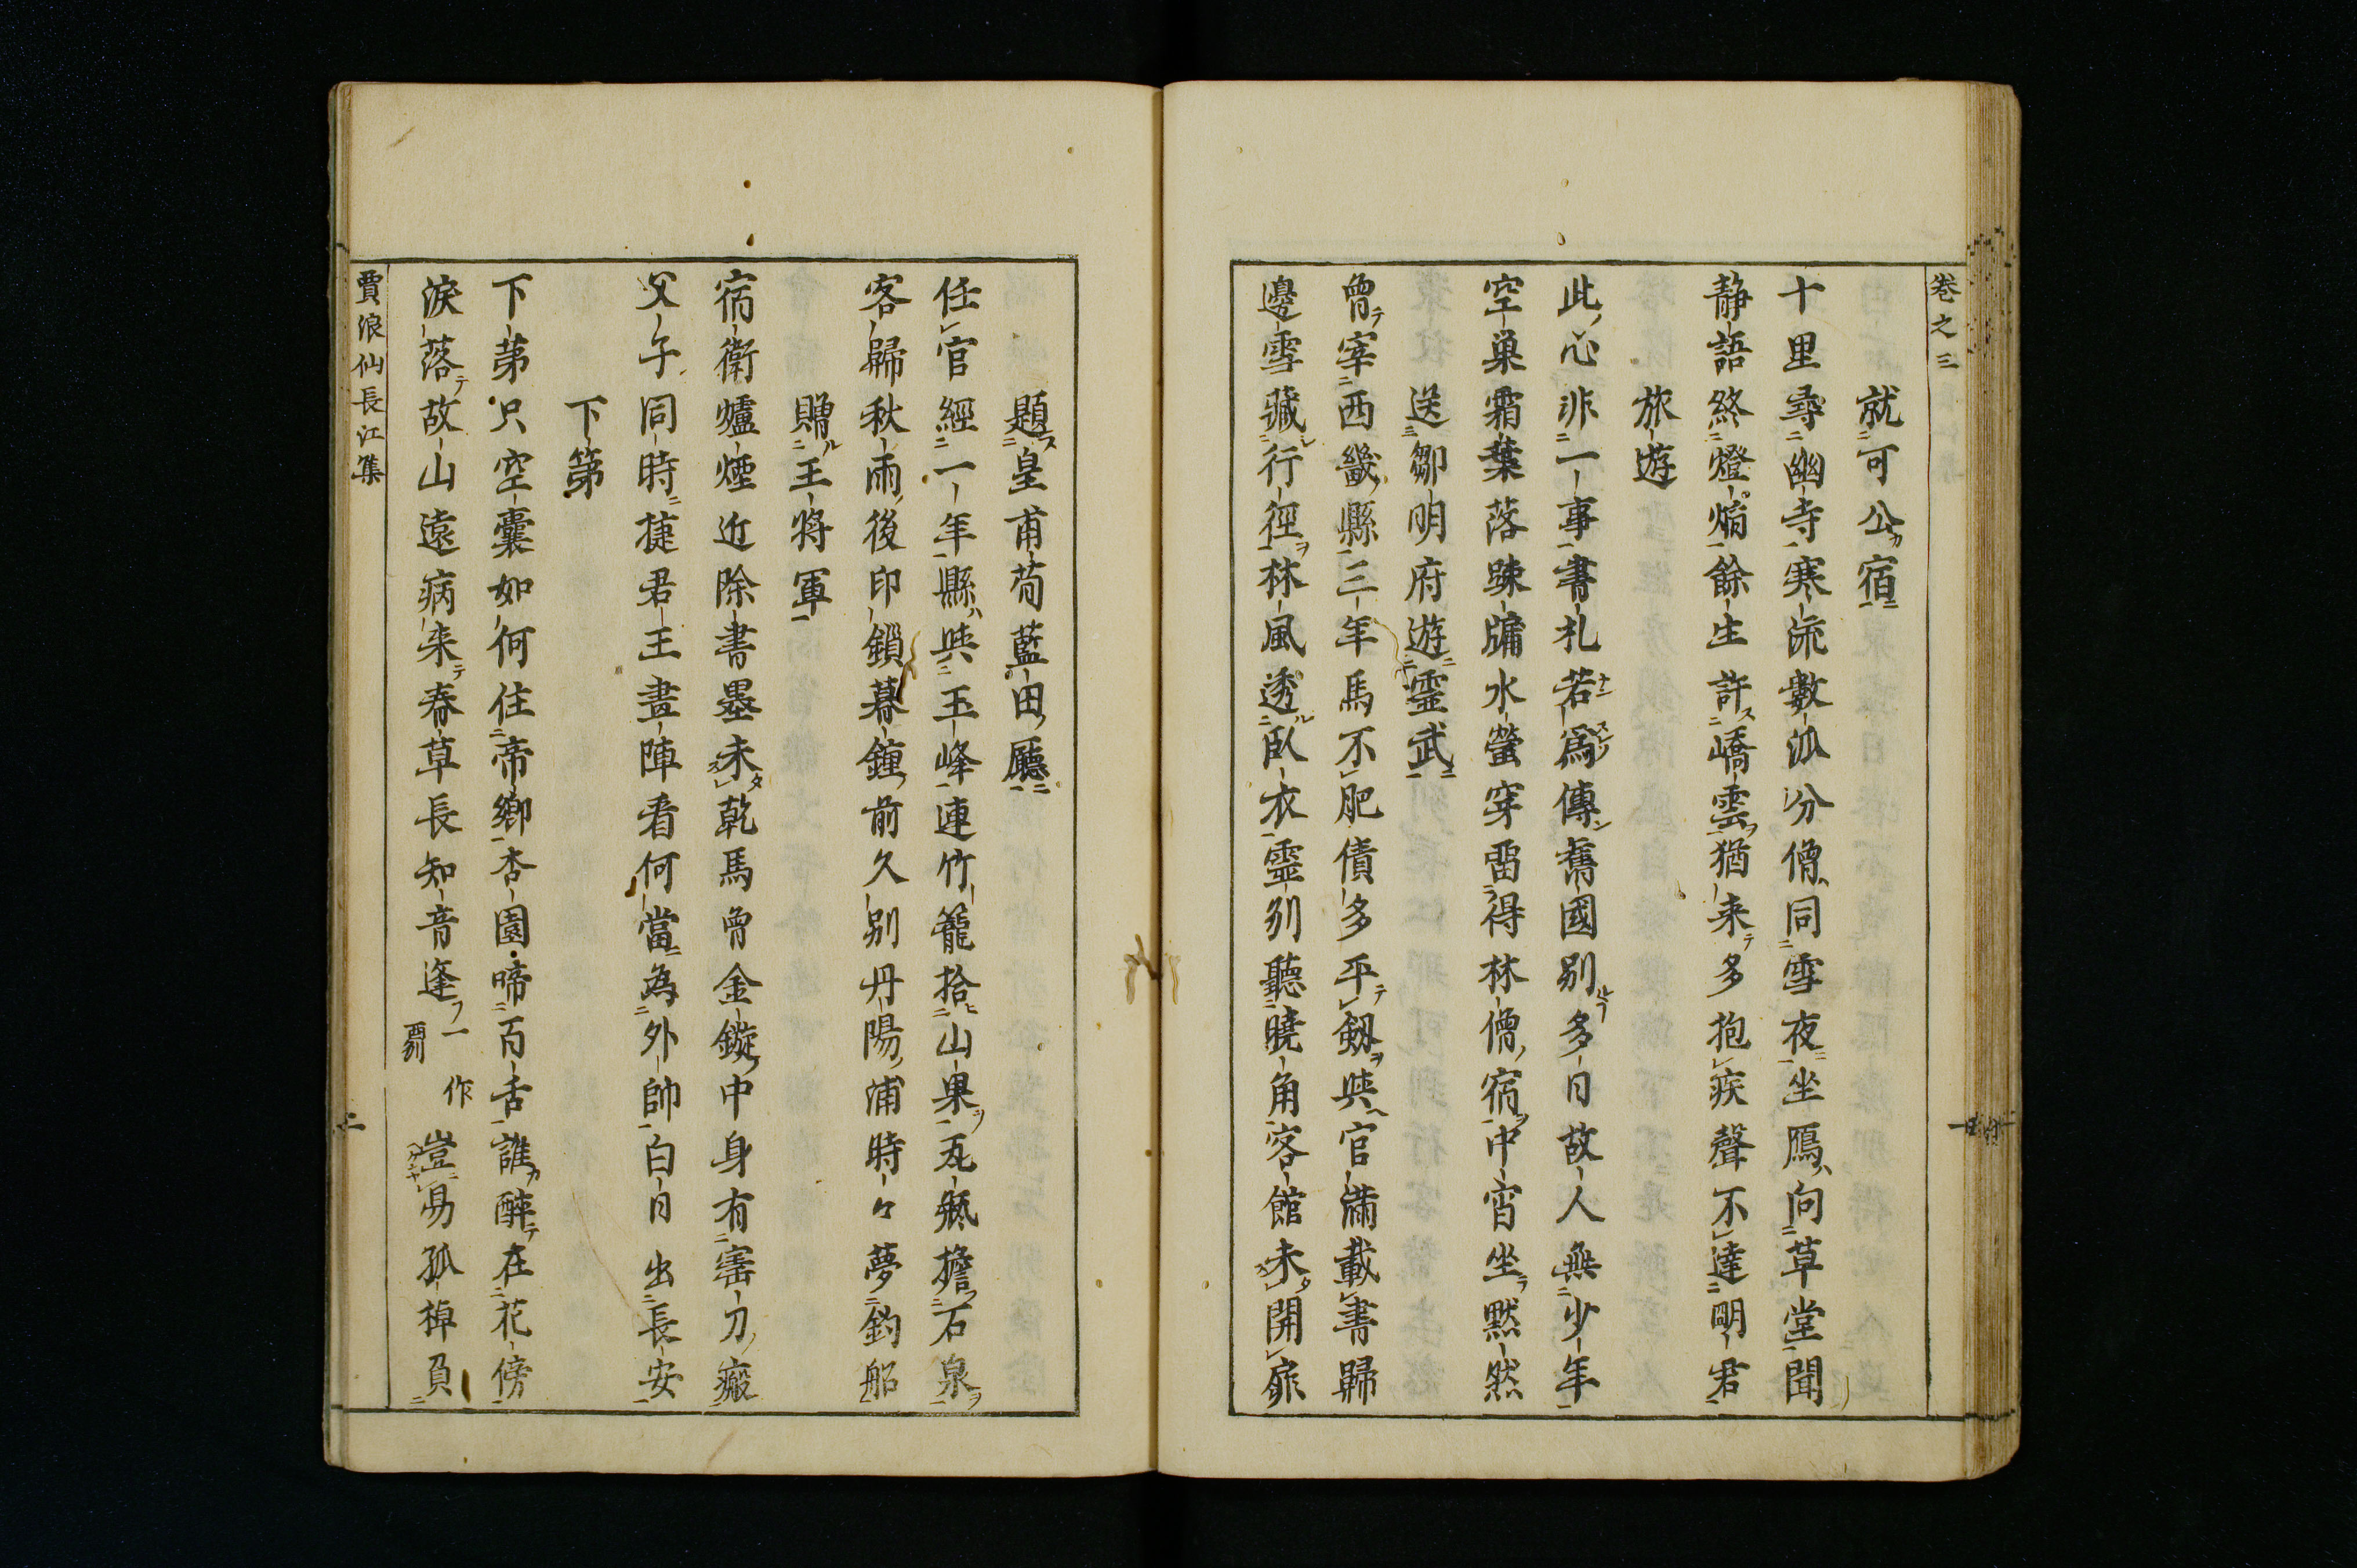 卷之三
就可公宿
十里尋幽寺寒流數派分僧同雪夜坐鴈向草堂聞
靜語終燈焰餘生許嶠雲猶来多抱疾聲不達明君
旅遊
此心非一事書札若爲傳舊國別多日故人無少年
空巢霜葉落踈牖水螢穿畱得林僧宿中宵坐黙然
送鄒明府遊靈武
曾宰西畿縣三年馬不肥債多平劔與官滿載書歸
邊雪藏行徑林風透臥衣靈州聽曉角客館未開扉
題皇甫荀藍田廳
任官經一年縣與玉峰連竹籠拾山果瓦瓶擔石泉
客歸秋雨後印鎖暮鐘前久別丹陽浦時々夢釣船
贈王將軍
宿衛爐煙近除書墨未乾馬曾金鏃中身有寶刀瘢
父子同時捷君王晝陣看何當為外帥白日出長安
下第
下第只空囊如何住帝鄉杏園啼百舌誰醉在花傍
淚落故山遠病来春草長知音逢一作豈易孤棹負
賈浪仙長江集
二